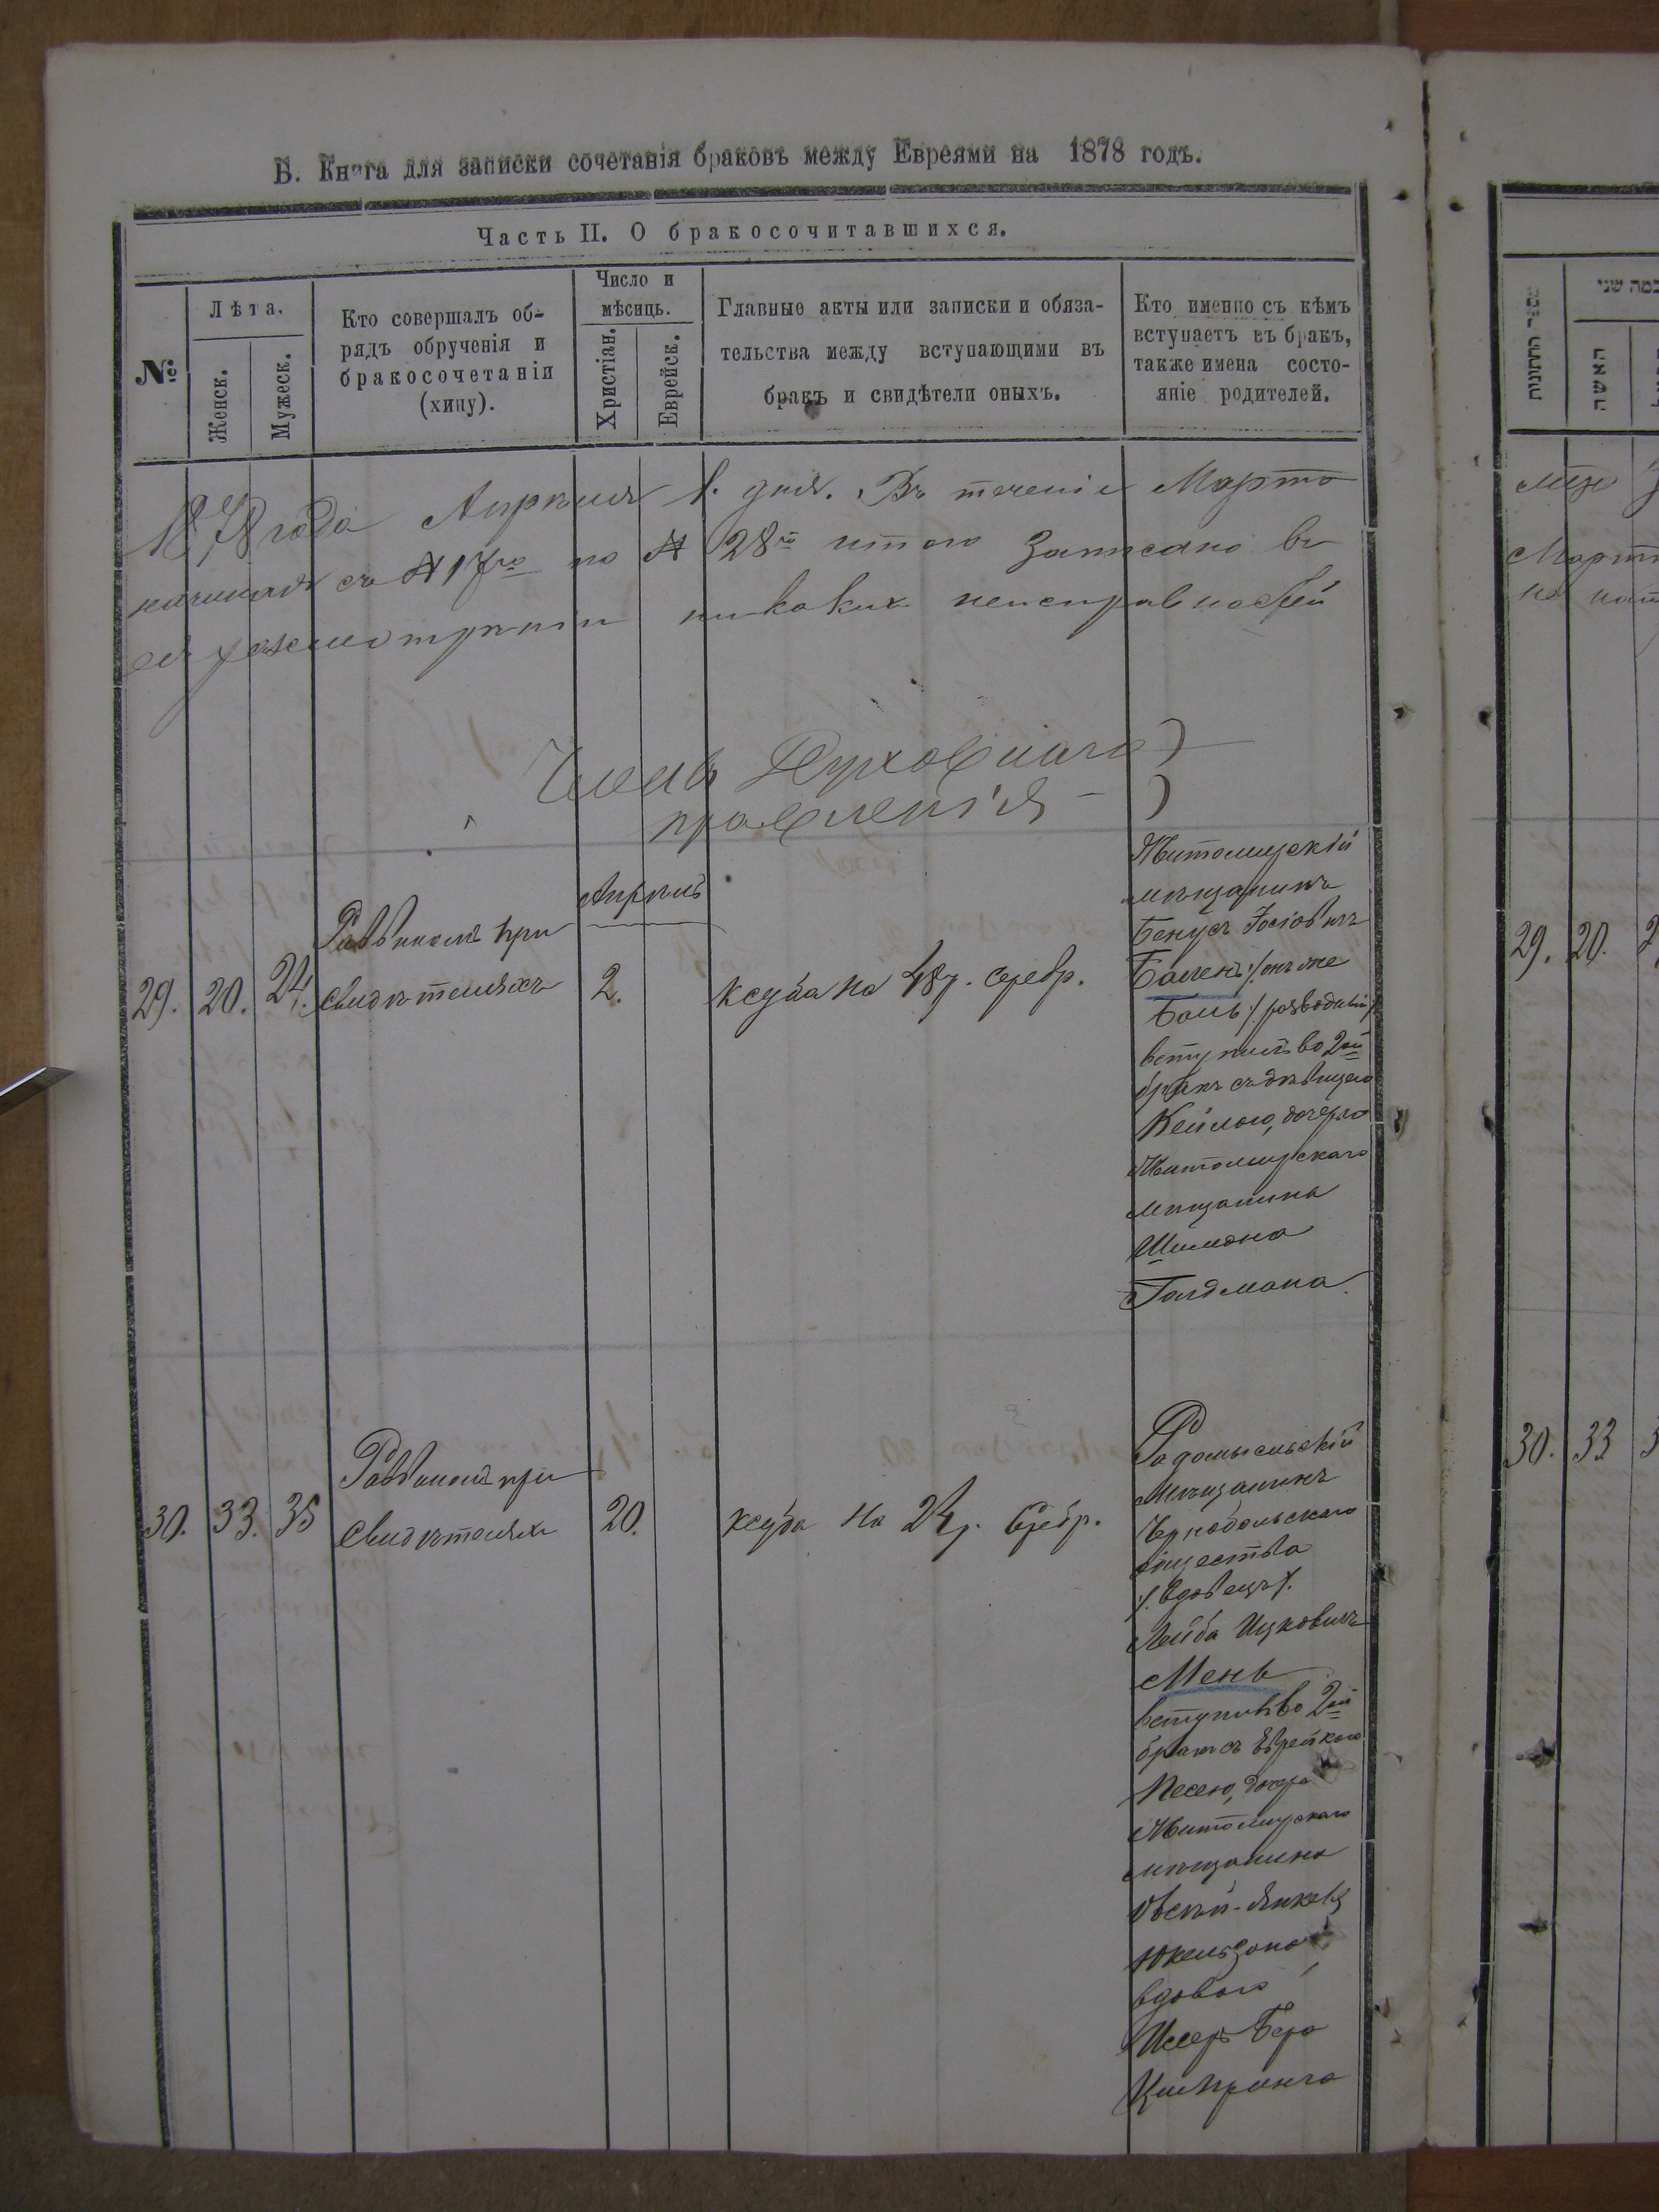 Б. Книга для записки сочетанія браковъ между Евреями на 1878 годъ.
Часть II. О бракосочитавшихся.
№
Лѣта.
Женск.
Мужеск.
Кто совершалъ об-
рядъ обрученія и
бракосочетаніи
(хипу).
Число и
мѣсяць.
Христіан.
Еврейск.
Главные акты или записки и обяза-
тельства между вступающими въ
бракъ и свидѣтели оныхъ.
Кто именно съ кѣмъ
вступаетъ въ бракъ,
также имена состо-
яніе родителей.
1878 года Апрѣля 1. дня. Въ теченіи Марта
начиная съ № 17го по № 28й итого записано
никакихъ неисправностей
Членъ Духовнаго
правленія
29. 20. 24.
Раввиномъ при
свидѣтеляхъ
Апрѣль
2.
ксуба на 48 р. серебр.
Житомирскій
мѣщанинъ
Бенусъ Іосіовичъ
Боленъ /: онъ же
Боль /: разводный :/
вступилъ во 2ой
бракъ съ дѣвицею
Кейлою, дочерью
Житомирскаго
мѣщанина
Шимона
Голдмана
30. 33. 35
Раввиномъ при
свидѣтеляхъ
20.
ксуба на 24 р. серебр.
Радомысльскій
Мѣщанинъ
Чернобольскаго
общества
/: вдовецъ :/
Лейба Ицковичъ
Мень
вступилъ во 2ой
бракъ съ Еврейкою
Песею, дочерью
Житомирскаго
мѣщанина
Юкельзона
вдовою
Бера
29. 20.
30. 33